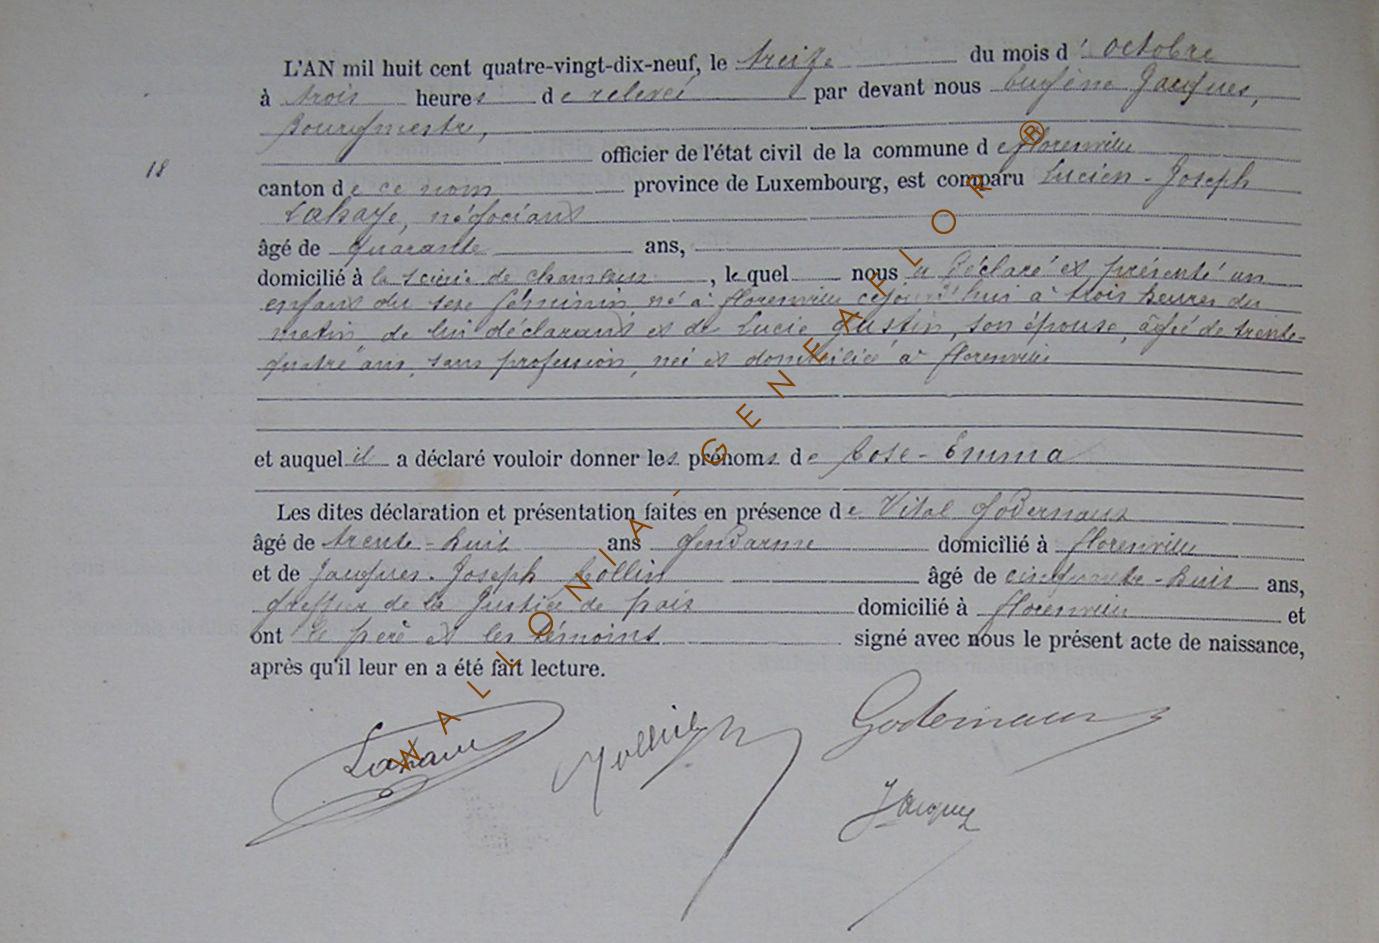 L'AN mil huit cent quatre-vingt-dix-neuf, le treize du mois d'octobre
à trois heures de relevée par devant nous Eugène Jacques,
Bourgmestre,
officier de l'état civil de la commune de Florenville
18
canton de ce nom province de Luxembourg, est comparu Lucien-Joseph
Lahaye, négociant
âgé de quarante ans,
domicilié à la scierie de Chameleux, lequel nous a déclaré et présenté un
enfant du sexe féminin né à Florenville cejourd'hui à trois heures du
matin, de lui déclarant et de Lucie Gustin, son épouse, âgée de trente-
quatre ans, sans profession, née et domiciliée à Florenville
et auquel il a déclaré vouloir donner les prénoms de Rose-Emma
Les dites déclaration et présentation faites en présence de Vital Godernaux
âgé de trente-huit ans Gendarme domicilié à Florenville
et de Jacques-Joseph Collin âgé de cinquante-huit ans,
greffier de la justice de paix domicilié à Florenville et
ont le père et les témoins signé avec nous le présent acte de naissance,
après qu'il leur en a été fait lecture.
Godernaux
Jacques
WALLONIA-GENEAFLOR®